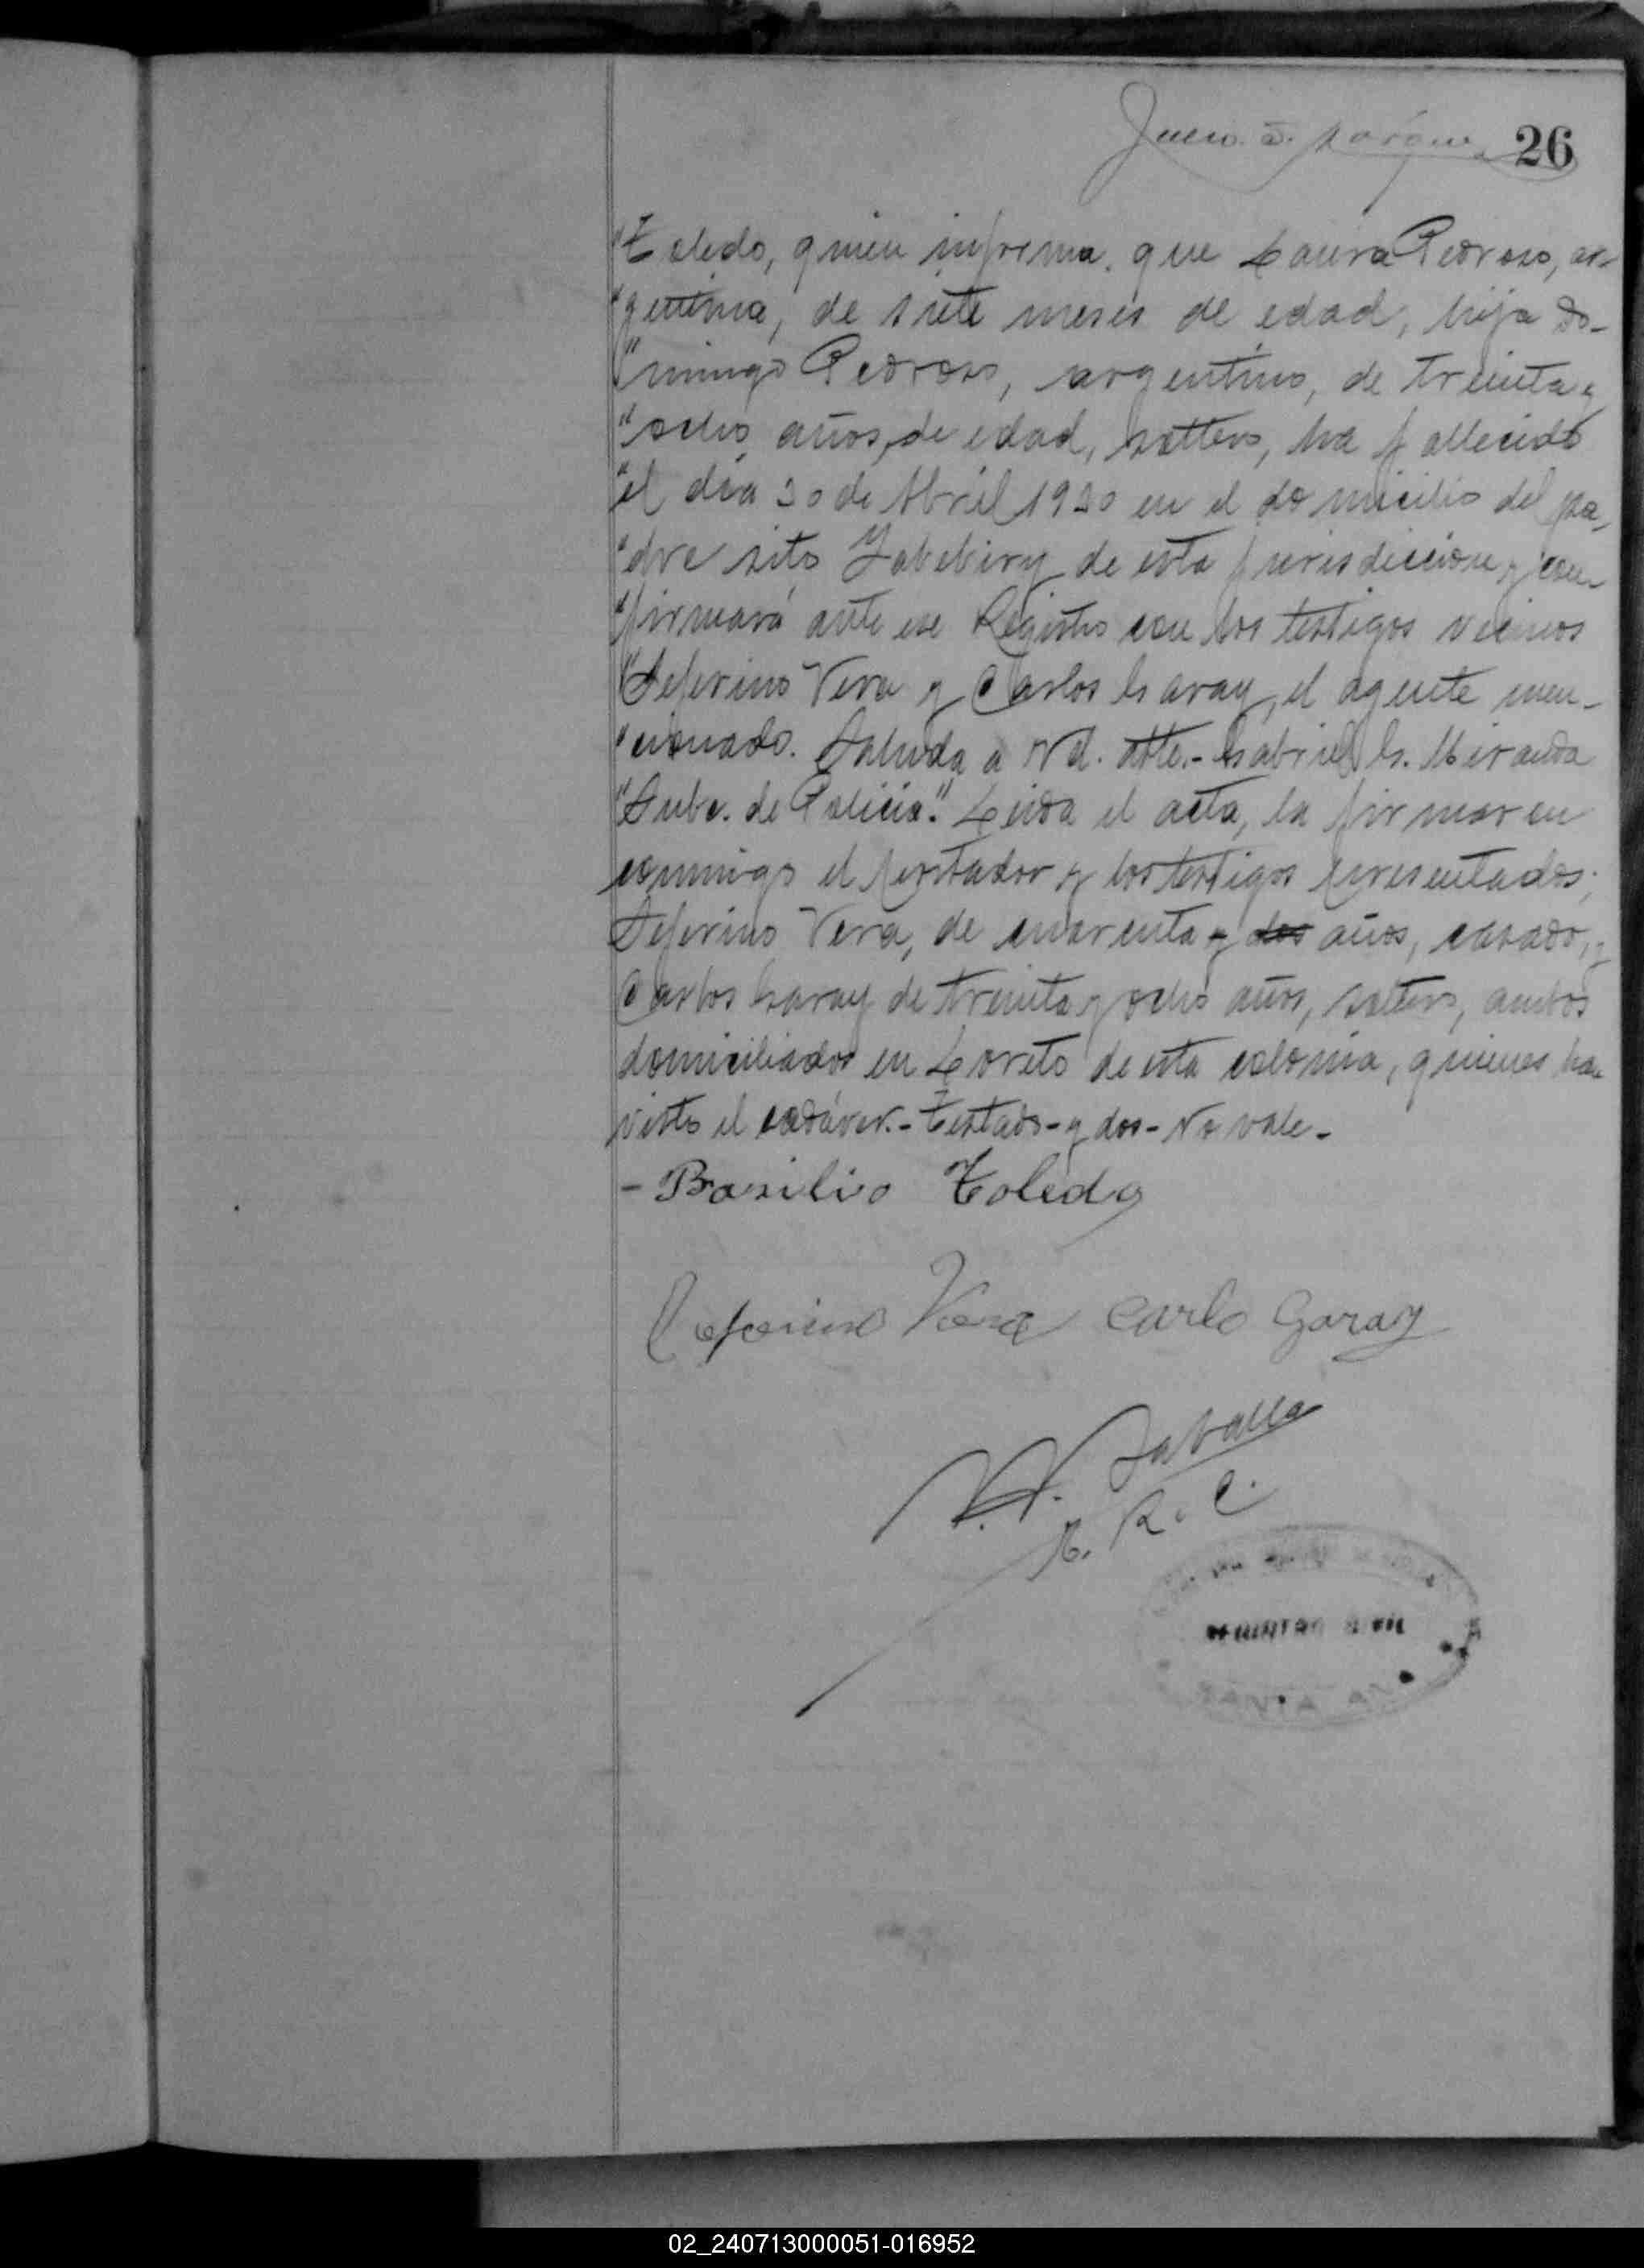 26
"Toledo, quien informa que Laura Pedroso, ar-
"gentina, de siete meses de edad, hija Do-
"mingo Pedroso, argentino, de treinta y
"ocho años de edad, soltero, ha fallecido
"el día 20 de Abril 1920 en el domicilio del pa-
"dre sito Yabebiry de esta jurisdiccion y con-
"firmará ante ese Registro con los testigos vecinos
"Seferino Vera y Carlos Garay, el agente men-
"cionado. Saluda a Vd. atte.- Gabriel G. Miranda
"Subc. de Policia". Leida el acta, la firmaron
conmigo el portador y los testigos presentados;
Seferino Vera, de cuarenta y dos años, casado, y
Carlos Garay de treinta y ocho años, soltero, ambos
domiciliados en Loreto de esta colonia, quienes han
visto el cadáver.- Testado - y dos - No vale -
- Basilio Toledo
Ceferino Vera Carlo Garay
Zaballa
R. C.
REGISTRO CIVIL
SANTA ANA
02_240713000051-016952